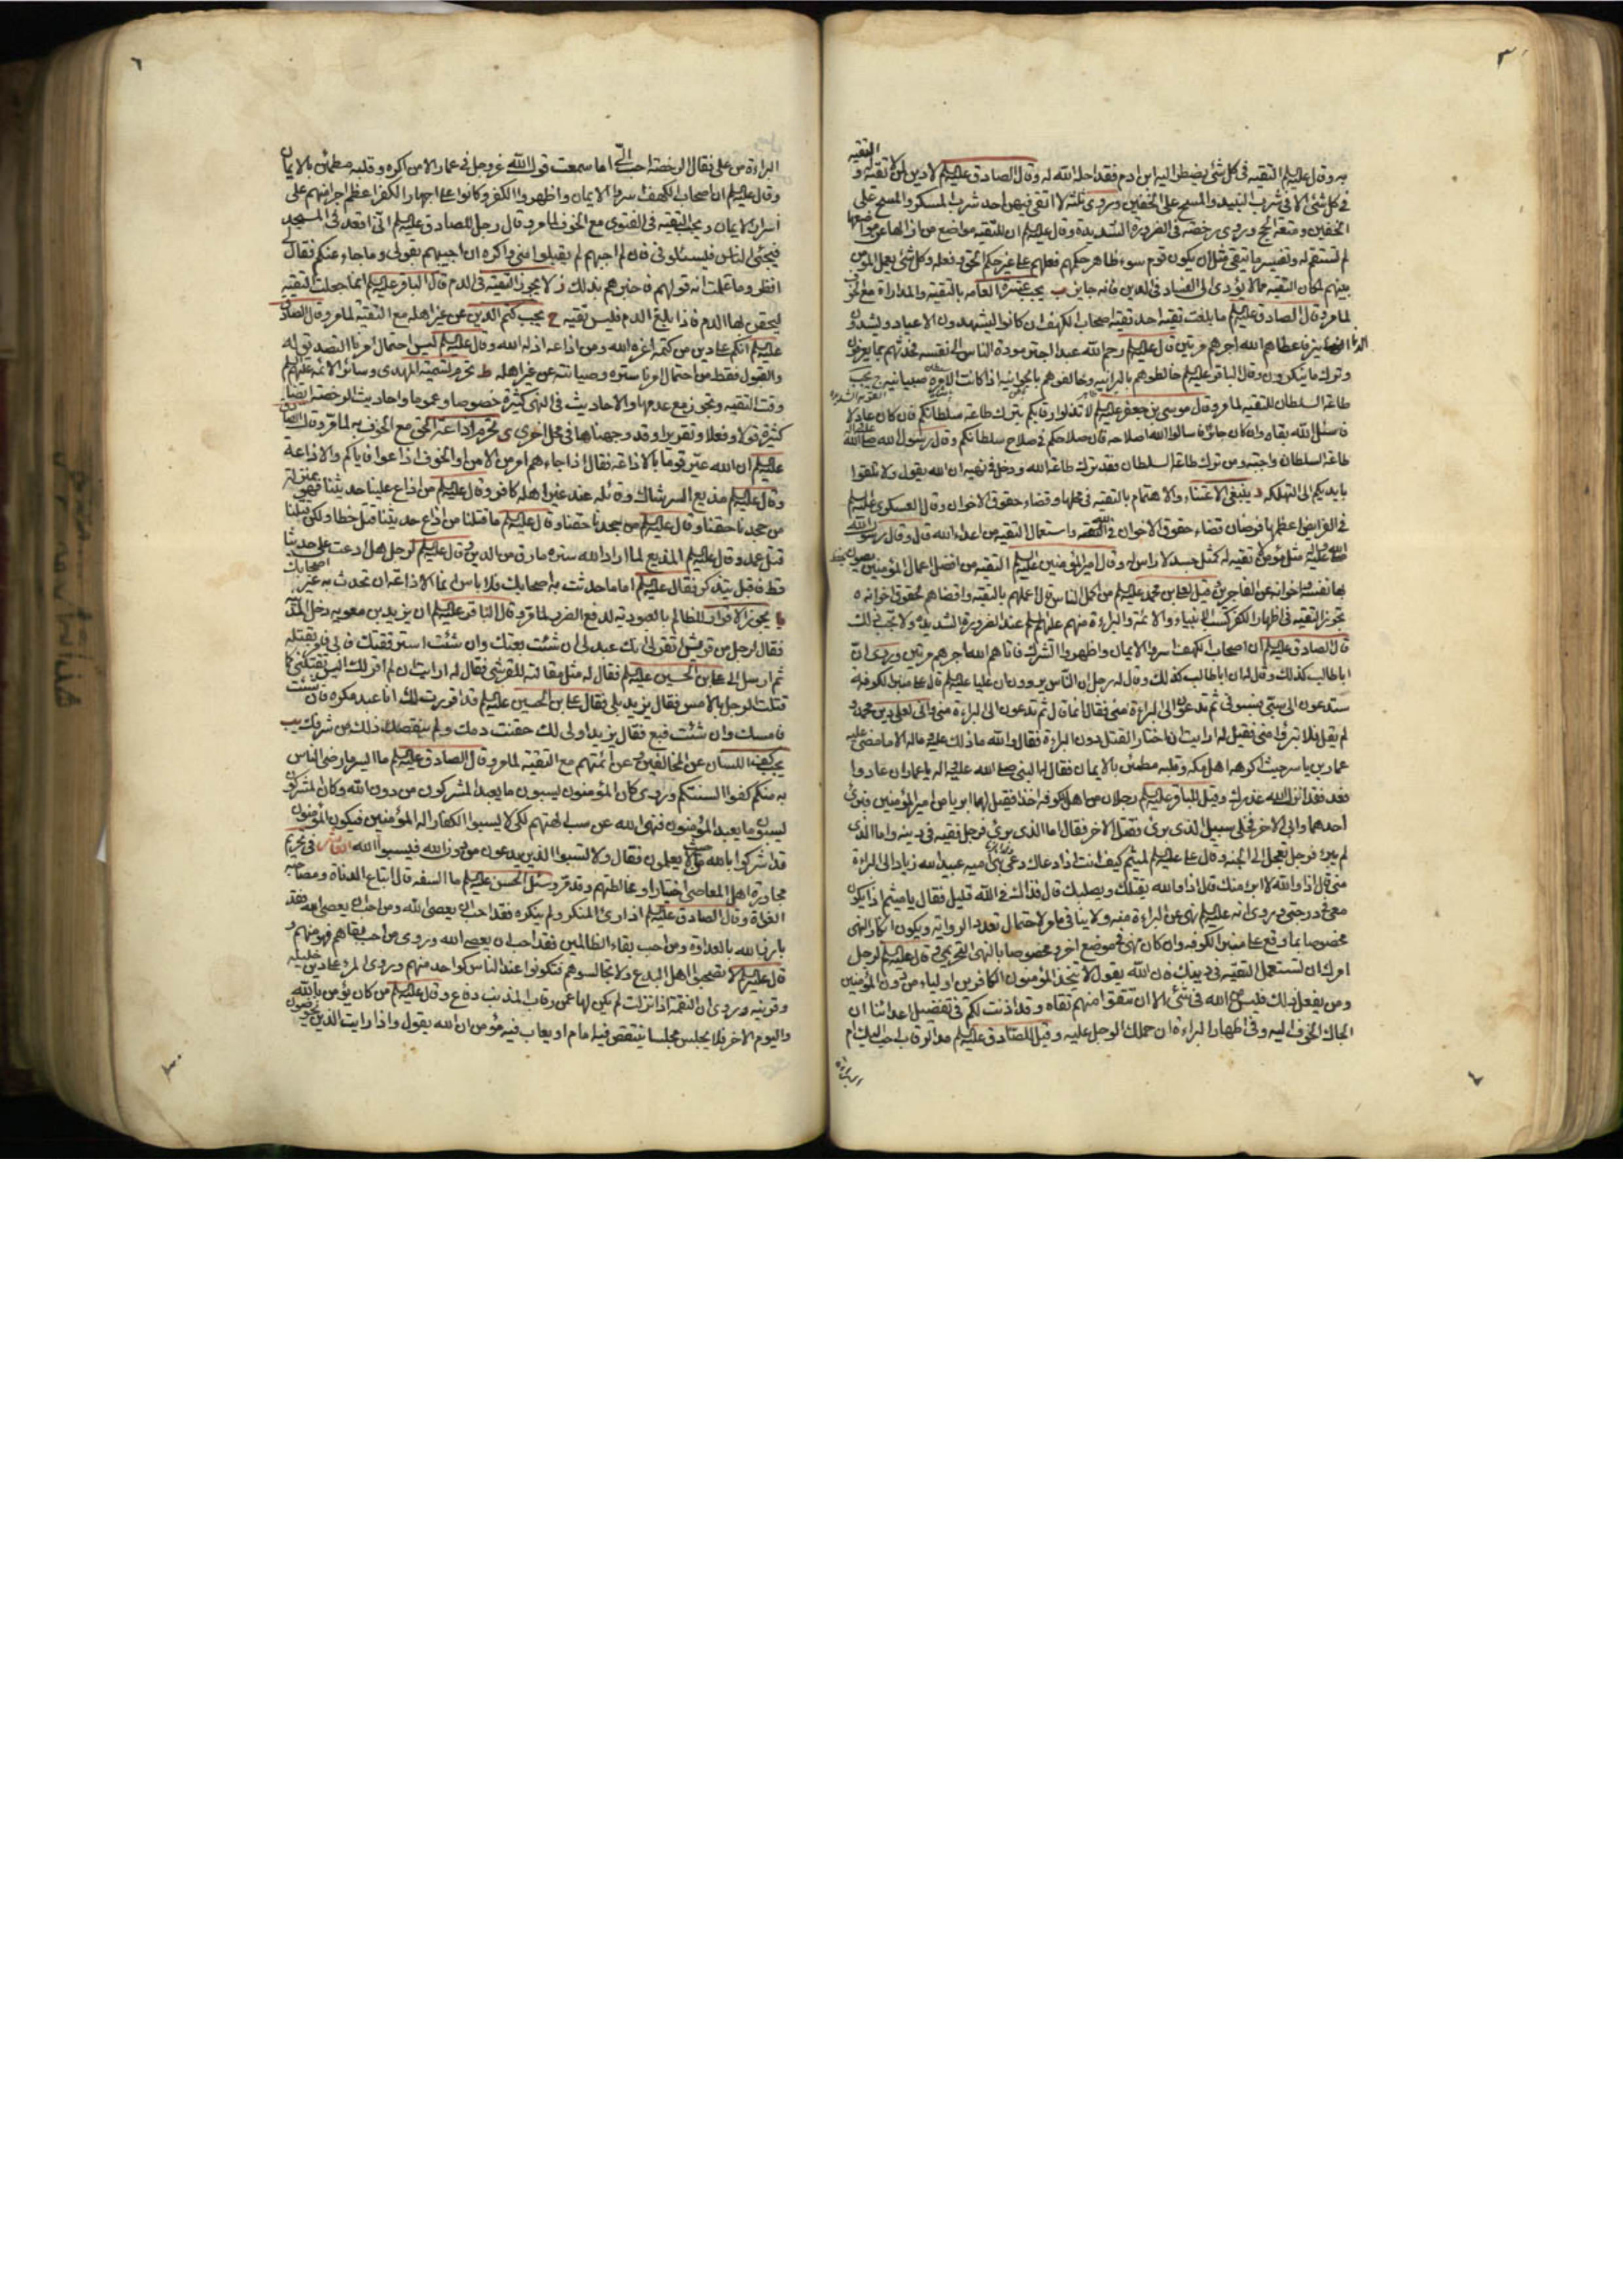 ٣
التقيه
به وقال عليه السلم التقيه في كل شئ يضطر اليه ابن ادم فقد احله الله له وقال الصادق عليه السلم لا دين لمن لا تقية له و
في كل شئ الا في شرب النبيذ والمسح على الخفين وروى ثلثة لا اتقي فيهن احد شرب المسكر والمسح على
الخفين ومتعة الحج وروى رخصة في الضرورة الشديدة وقال عليه السلم ان للتقيه مواضع من ازالها عن مواضعها
لم تستقم له وتفسير ما يتقى مثل ان يكون قوم سوء ظاهر حكمهم وفعلهم على غير حكم الحق وفعله فكل شئ يعمل المؤمن
بينهم لمكان التقية مما لا يؤدي الى الفساد في الدين فانه جايز ب يجب عشرة العامه بالتقيه والمداراة مع الخوف
لما مر وقال الصادق عليه السلم ما بلغت تقية احد تقية اصحاب الكهف ان كانوا ليشهدون الاعياد ويشدون
الزنانير فاعطاهم الله اجرهم مرتين وقال عليه السلم رحم الله عبدا اجتر مودة الناس الى نفسه فحدثهم بما يعرفون
وترك ما ينكرون وقال الباقر عليه السلم خالطوهم بالبرانيه وخالفوهم بالجوانيه اذا كانت الامرة صبيانيه ج يجب
طاعة السلطان للتقيه لما مر وقال موسى بن جعفر عليه السلم لا تذلوا رقابكم بترك طاعة سلطانكم فان كان عادلا
فاسئلوا الله بقاه وان كان جائرا فاسالوا الله اصلاحه فان صلاحكم في صلاح سلطانكم وقال رسول الله صلى الله
طاعة السلطان واجبة ومن ترك طاعة السلطان فقد ترك طاعة الله ودخل في نهيه ان الله يقول ولا تلقوا
بايديكم الى التهلكه د ينبغي الاعتناء والاهتمام بالتقيه في محلها وقضاء حقوق الاخوان وقال العسكري عليه السلم
في الفرايض اعظمها فرضان قضاء حقوق الاخوان في الله واستعمال التقيه من اعداء الله قال وقال رسول الله
صلى الله عليه واله مثل مؤمن لا تقيه له كمثل جسد لا راس له وقال امير المؤمنين عليه السلم التقيه من افضل اعمال المؤمنين يصون
بها نفسه واخوانه عن الفاجرين وقيل لعلي بن محمد عليه السلم من اكمل الناس قال اعملهم بالتقيه واقضاهم لحقوق اخوانه ه
تجوز التقيه في اظهار الكفر كسب الانبياء والائمة والبراءة منهم عليهم السلم عند الضرورة الشديدة ولا تجب في تلك
قال الصادق عليه السلم ان اصحاب الكهف اسروا الايمان واظهروا الشرك فاتاهم الله اجرهم مرتين وروى ان
ابا طالب كذلك وقيل له ان ابا طالب كذلك وقال له رجل ان الناس يروون ان عليا عليه السلم قال على منبر الكوفه
ستدعون الى سبي فسبوني ثم تدعون الى البراءة مني فقال انما قال ثم تدعون الى البراءة مني واني لعلى دين محمد و
لم يقل فلا تبرؤا مني فقيل له ارايت ان اختار القتل دون البراءة فقال والله ما ذلك عليه وماله الا ما مضى عليه
عمار بن ياسر حيث اكرهه اهل مكه وقلبه مطمئن بالايمان فقال له النبي صلى الله عليه واله يا عمار ان عادوا
فعد فقد انزل الله عذرك وقيل للباقر عليه السلم رجلان من اهل الكوفه اخذا فقيل لهما ابريا من امير المؤمنين فبرئ
احدهما وابى الاخر فخلي سبيل الذي برئ وقتل الاخر فقال اما الذي برئ فرجل فقيه في دينه واما الذي
لم يبرء فرجل تعجل الى الجنه وقال على عليه السلم لميثم كيف انت اذا دعاك دعي بني اميه عبيد الله بن زياد الى البراءة
مني قال اذا والله لا ابرء منك قال اذا والله يقتلك ويصلبك قال فذلك في الله قليل فقال يا ميثم اذا تكون
معي في درجتي وروى انه عليه السلم نهى عن البراءة منه ولا ينافي ما مر لاحتمال تعدد الرواية ويكون انكار النهى
مخصوصا بما وقع على منبر الكوفه وان كان نهى في موضع اخر ومخصوصا بالنهى التحريمي وقال عليه السلم لرجل
امرك ان تستعمل التقيه في دينك فان الله يقول لا يتخذ المؤمنون الكافرين اولياء من دون المؤمنين
ومن يفعل ذلك فليس من الله في شئ الا ان تتقوا منهم تقاه وقد اذنت لكم في تفضيل اعدائنا ان
الجاك الخوف اليه وفي اظهار البراءة ان حملك الوجل عليه وقيل للصادق عليه السلم مد الرقاب احب اليك ام
البراءة
٦
البراءة من علي فقال الرخصة احب الي اما سمعت قول الله عز وجل في عمار الا من اكره وقلبه مطمئن بالايمان
وقال عليه السلم ان اصحاب الكهف اسروا الايمان واظهروا الكفر وكانوا على اجهار الكفر اعظم اجرا منهم على
اسرار الايمان و يجب التقيه في الفتوى مع الخوف لما مر وقال رجل للصادق عليه السلم اني اقعد في المسجد
فيجئ الناس فيسئلوني فان لم اجبهم لم يقبلوا مني واكره ان اجيبهم بقولكم وما جاء عنكم فقال لي
انظر ما علمت انه قولهم فاخبرهم بذلك ز لا يجوز التقية في الدم قال الباقر عليه السلم انما جعلت التقيه
ليحقن بها الدم فاذا بلغ الدم فليس تقيه ح يجب كتم الدين عن غير اهله مع التقية لما مر وقال الصادق
عليه السلم انكم على دين من كتمه اعزه الله ومن اذاعه اذله الله وقال عليه السلم ليس احتمال امرنا التصديق له
والقبول فقط من احتمال امرنا ستره وصيانته عن غير اهله ط تحرم تسمية المهدى وسائر الائمة عليهم السلم
وقت التقيه وتجوز مع عدمها والاحاديث في النهى كثيرة خصوصا وعموما واحاديث الرخصة ايضا
كثيرة قولا وفعلا وتقريرا وقد وجهناها في محل اخر ى تحرم اذاعة الحق مع الخوف به لما مر وقال الصادق
عليه السلم ان الله عير قوما بالاذاعة فقال اذا جاءهم امر من الامن او الخوف اذاعوا به فاياكم والاذاعة
وقال عليه السلم مذيع السر شاك وقائله عند غير اهله كافر وقال عليه السلم من اذاع علينا حديثنا فهو بمنزلة
من جحدنا حقنا وقال عليه السلم من يجحدنا حقنا وقال عليه السلم ما قتلنا من اذاع حديثنا قتل خطا ولكن قتلنا
قتل عمد وقال عليه السلم المذيع لما اراد الله ستره مارق من الدين وقال عليه السلم لرجل هل اذعت على حديثنا
قط فاقبل يتذكر فقال عليه السلم اما ما حدثت به اصحابك فلا باس انما الاذاعة ان تحدث به غير اصحابك
يا يجوز الاقرار للظالم بالعبوديه لدفع الضرر لما مر وقال الباقر عليه السلم ان يزيد بن معويه دخل المدينه
فقال لرجل من قريش اتقر لي انك عبد لي ان شئت بعتك وان شئت استرققتك فابى فامر بقتله
ثم ارسل الى علي بن الحسين عليه السلم فقال له مثل مقالته للقرشي فقال له ارايت ان لم اقر لك اليس تقتلني كما
قتلت الرجل بالامس فقال يزيد بلى فقال علي بن الحسين عليه السلم قد اقررت لك انا عبد مكره فان شئت
فامسك وان شئت فبع فقال يزيد اولى لك حقنت دمك ولم ينقصك ذلك من شرفك يب
يجب كف اللسان عن المخالفين وعن ائمتهم مع التقية لما مر وقال الصادق عليه السلم ما ايسر ما رضى الناس
به منكم كفوا السنتكم وروى كان المؤمنون يسبون ما يعبد المشركون من دون الله وكان المشركون
يسبون ما يعبد المؤمنون فنهى الله عن سب الهتهم لكي لا يسبوا الكفار اله المؤمنين فيكون المؤمنون
قد اشركوا بالله من حيث لا يعلمون فقال ولا تسبوا الذين يدعون من دون الله فيسبوا الله الثامن في تحريم
مجاورة اهل المعاصي اختيارا ومخالطتهم وقد مر وسئل الحسن عليه السلم ما السفه قال اتباع الدناة ومصاحبة
الغواة وقال الصادق عليه السلم اذا راى المنكر ولم ينكره فقد احب ان يعصى الله ومن احب ان يعصى الله فقد
بارز الله بالعداوة ومن احب بقاء الظالمين فقد احب ان يعصى الله وروى من احب بقاهم فهو منهم و
قال عليه السلم لا تصحبوا اهل البدع ولا تجالسوهم فتكونوا عند الناس كواحد منهم وروى المرء على دين خليله
وقرينه وروى ان النقمة اذا نزلت لم يكن لها عمن قارب المذنب دفاع وقال عليه السلم من كان يؤمن بالله
واليوم الاخر فلا يجلس مجلسا ينتقص فيه امام او يعاب فيه مؤمن ان الله يقول واذا رايت الذين يخوضون